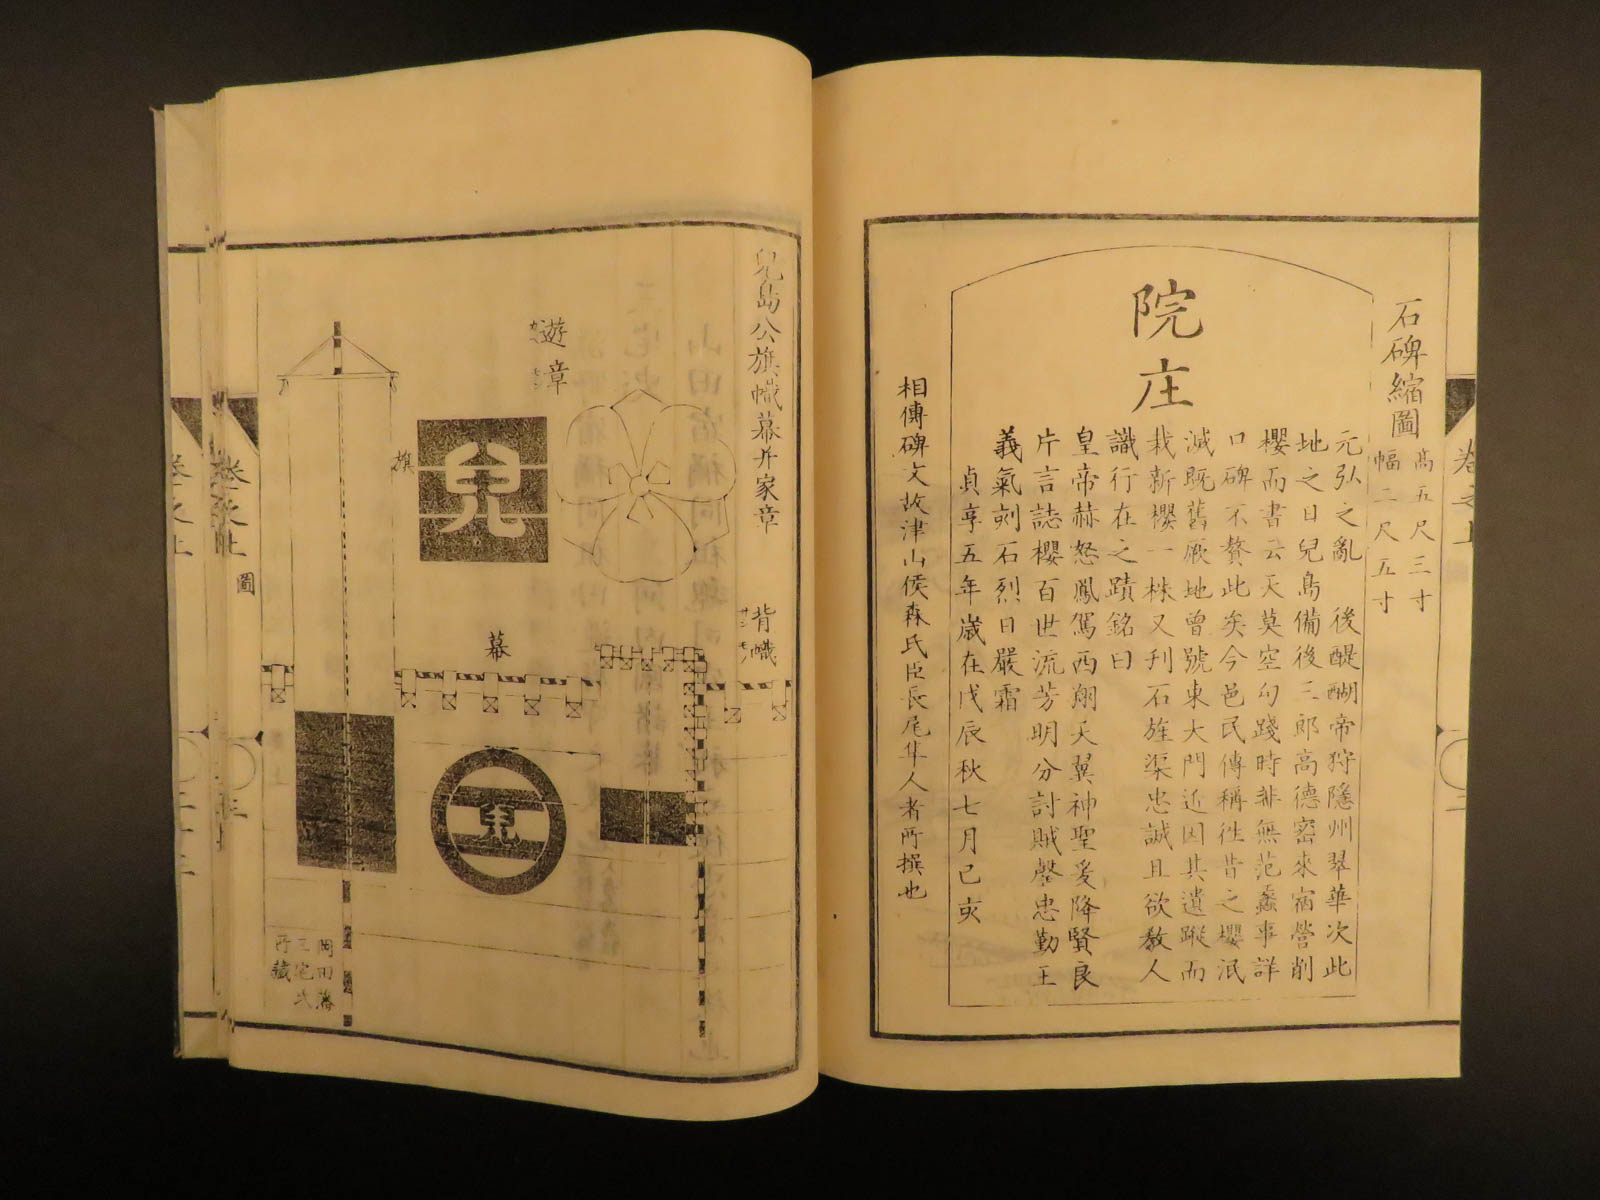 石碑縮圖
高五尺三寸
幅二尺五寸
院庄
元弘之亂　後醍醐帝狩隱州翠華次此
地之日兒島備後三郎高德密來宿營削
櫻而書云天莫空勾踐時非無范蠡事詳
口碑不贅此矣今邑民傳稱徃昔之櫻泯
滅既舊厥地曾號東大門近因其遺蹤而
栽新櫻一株又刋石旌渠忠誠且欲敎人
識行在之蹟銘曰
皇帝赫怒鳳駕西翔天翼神聖爰降賢良
片言誌櫻百世流芳明分討賊盡忠勤王
義氣刻石烈日嚴霜
貞享五年歲在戊辰秋七月己亥
相傳碑文故津山侯森氏臣長尾隼人者所撰也
卷之上
二
兒島公旗幟幕并家章
遊章
背幟
旗
幕
兒
兒
岡田藩
三宅氏
所藏
圖
卷之上
三
卷之上